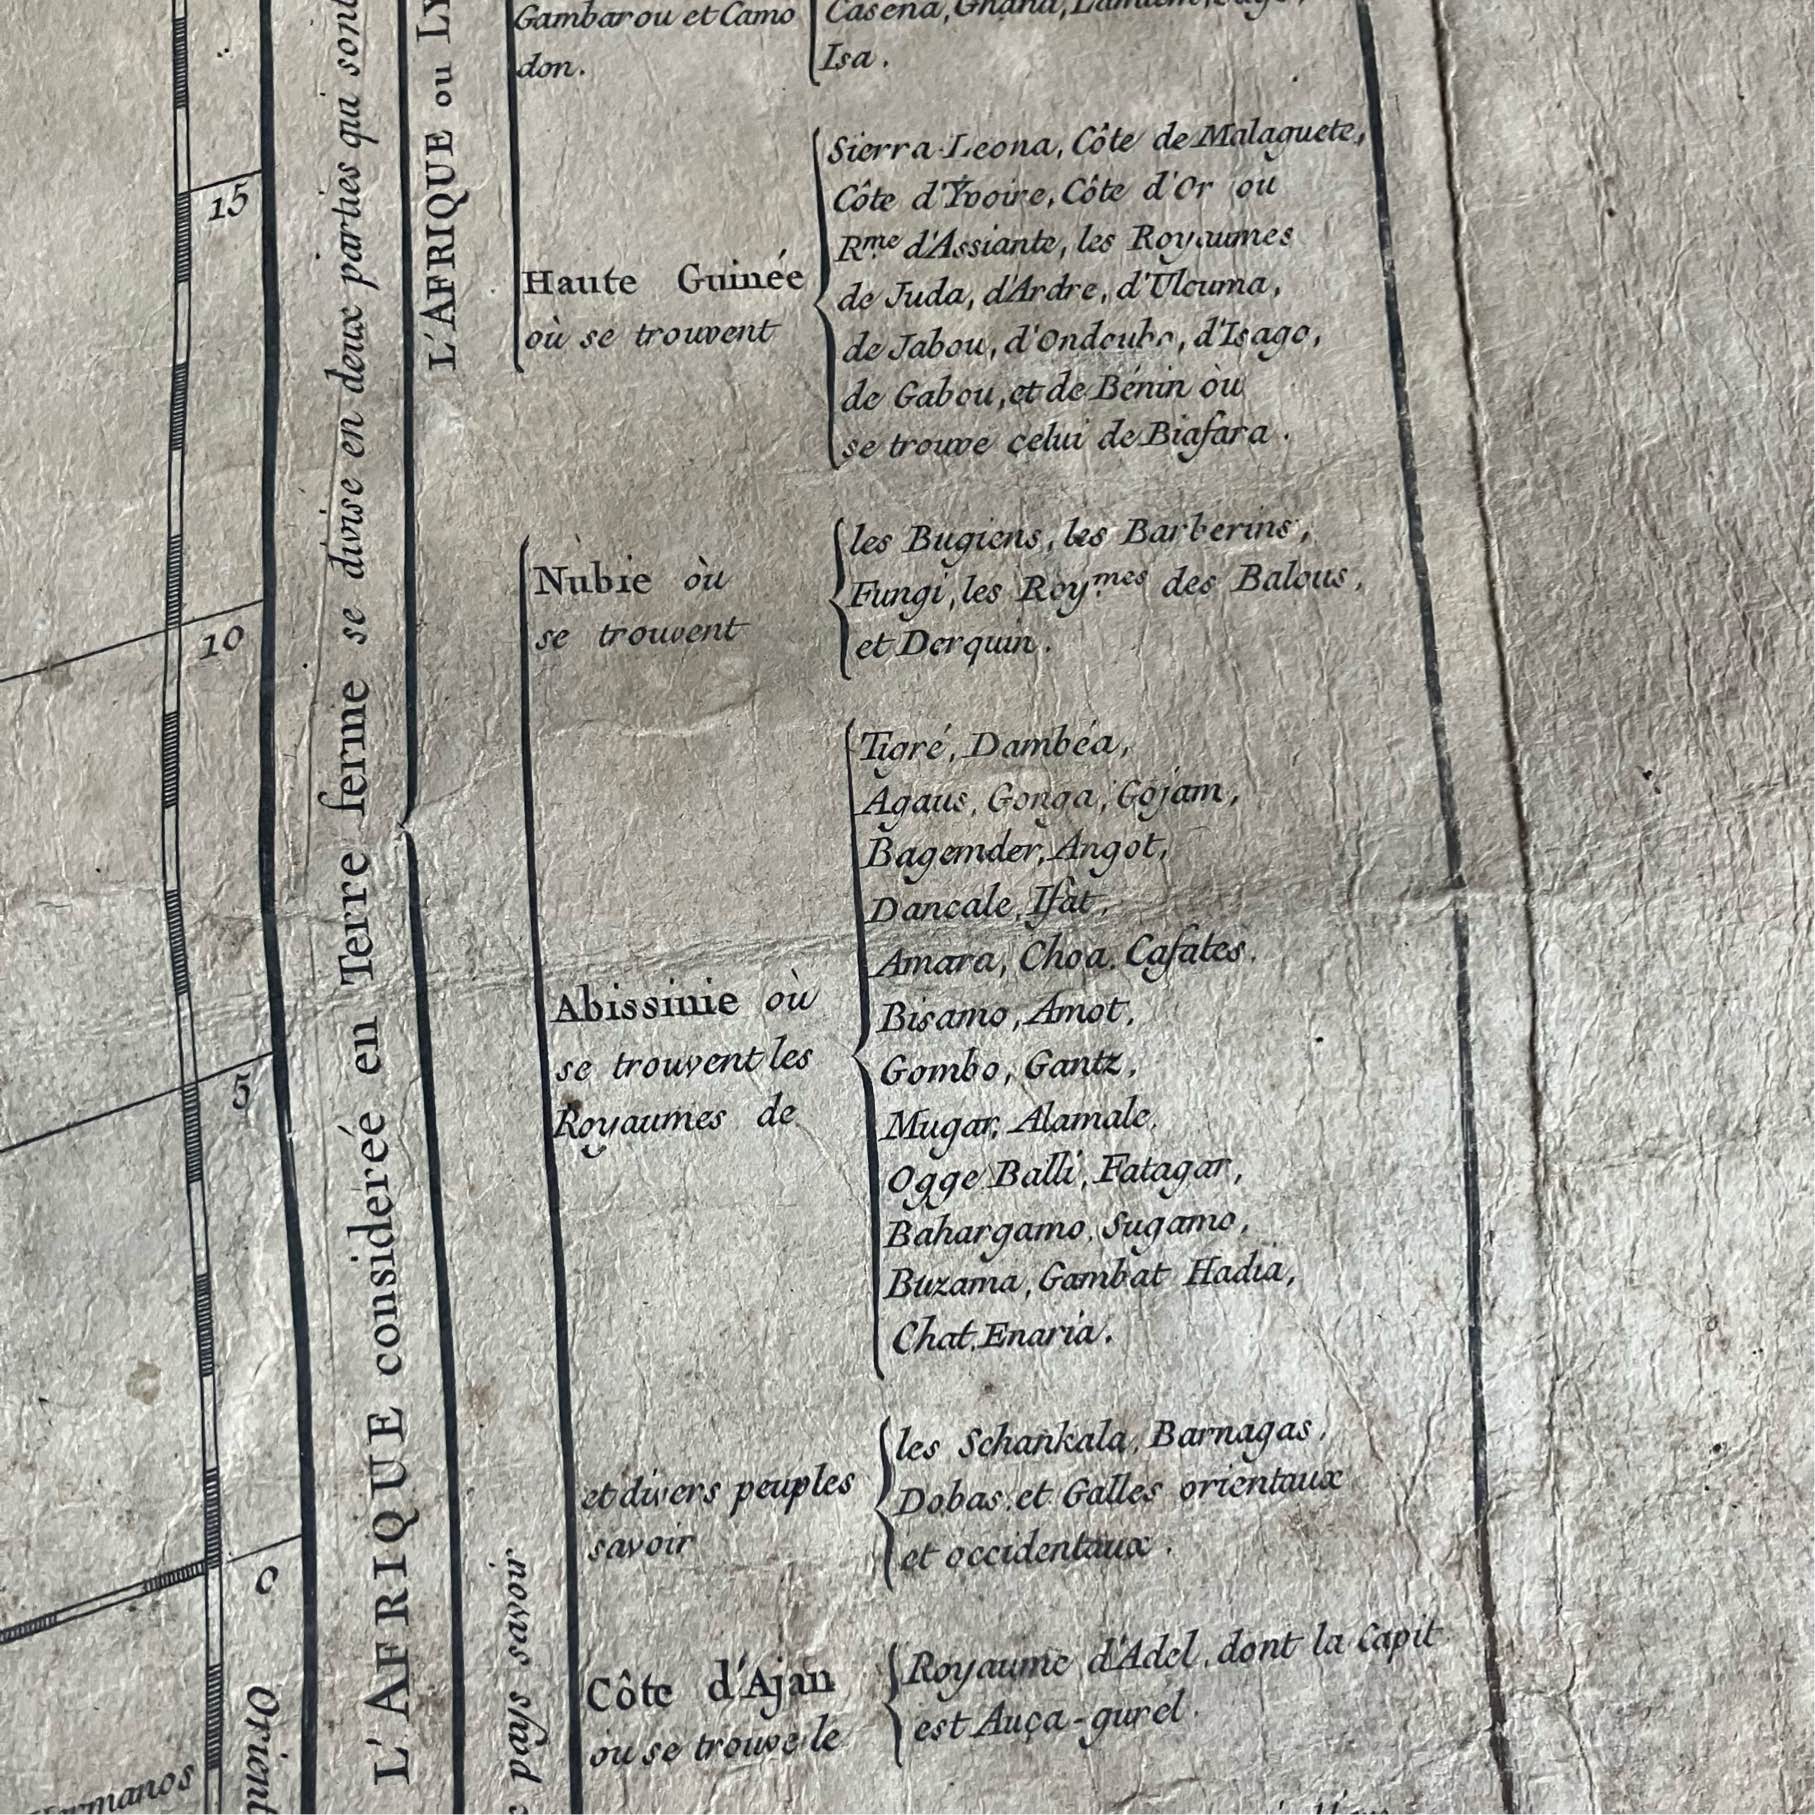 15
10
5
0
Orient
L'AFRIQUE considerée en Terre ferme se divise en deux parties qui sont
L'AFRIQUE ou
pays savoir
Gambarou et Camo
don.
Casena, Ghana,
Isa.
Haute Guinée
où se trouvent
Sierra-Leona, Côte de Malaguete,
Côte d'Yvoire, Côte d'Or ou
Rme. d'Assiante, les Royaumes
de Juda, d'Ardre, d'Ulcuma,
de Jabou, d'Isago,
de Gabou, et de Bénin où
se trouve celui de Biafara.
Nubie où
se trouvent
les Bugiens, les Barberins,
Fungi, les Roy.mes des Balous,
et Derquin.
Abissinie où
se trouvent les
Royaumes de
Tigré, Dambéa,
Agaus, Gonga, Gojam,
Bagemder, Angot,
Dancale, Ifat,
Amara, Choa, Cafates.
Bisamo, Amot,
Gombo, Gantz,
Mugar, Alamale.
Ogge Balli, Fatagar,
Bahargamo, Sugamo,
Buzama, Gambat Hadia,
Chat, Enaria.
et divers peuples
savoir
les Schankala, Barnagas,
Dobas, et Galles orientaux
et occidentaux.
Côte d'Ajan
où se trouve le
Royaume d'Adel, dont la Capit
est Auça-gurel.